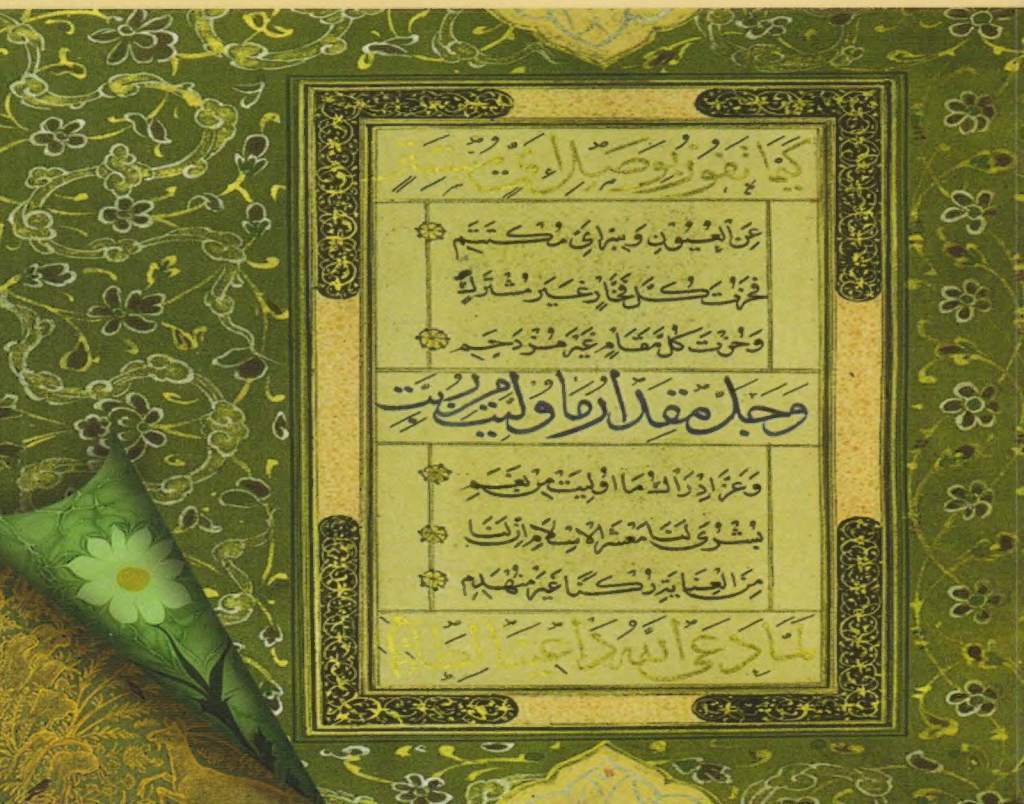 كَيْمَا تَفُوزَ بِوَصْلٍ أَيِّ مُسْتَتِرٍ
عَنِ الْعُيُونِ وَسِرٍّ أَيِّ مُكْتَتَمِ
فَحُزْتَ كُلَّ فَخَارٍ غَيْرَ مُشْتَرَكٍ
وَحُزْتَ كُلَّ مَقَامٍ غَيْرَ مُزْدَحَمِ
وَجَلَّ مِقْدَارُ مَا وُلِّيتَ مِنْ رُتَبٍ
وَعَزَّ إِدْرَاكُ مَا أُولِيتَ مِنْ نِعَمِ
بُشْرَى لَنَا مَعْشَرَ الْإِسْلَامِ إِنَّ لَنَا
مِنَ الْعِنَايَةِ رُكْنًا غَيْرَ مُنْهَدِمِ
لَمَّا دَعَى اللَّهُ دَاعِينَا